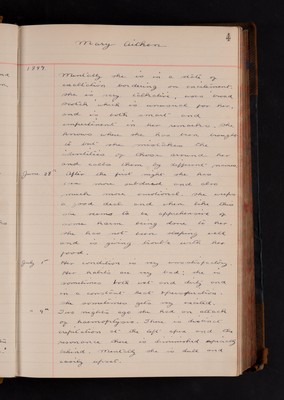 4
Mary Aitken
1889
Mentally she is in a state of
exaltation bordering on excitement.
She is very talkative, uses broad
Scotch which is unusual for her,
and is both smart and
impertinent in her remarks. She
knows where she has been brought
to but she mistakes the
identities of those around her
and calls them by different names
June 28th After the first night she has
been more subdued and also
much more emotional. She weeps
a good deal and when like this
she seems to be apprehensive of
some harm being done to her.
She has not been sleeping well
and is giving trouble with her
food.
July 1st Her condition is very unsatisfactory.
Her habits are very bad; she is
sometimes both wet and dirty and
in a constant
She sometimes gets very excited.
" 9th Two nights ago she had an attack
of haemoptysis. There is distinct
at the left apex and the
resonance there is diminished especially
behind. Mentally she is dull and
easily upset.